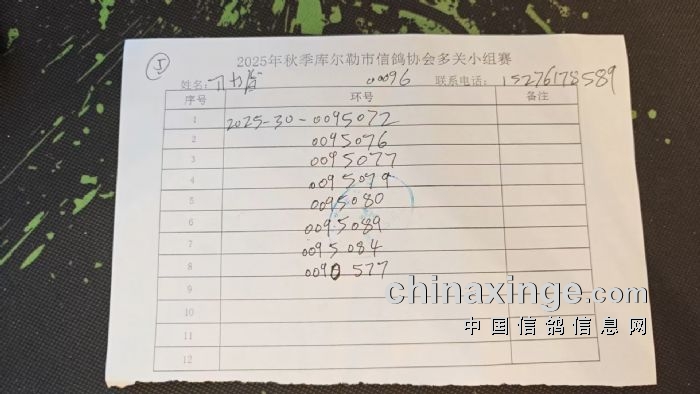 5
2025年秋季库尔勒市信鸽协会多关小组赛
姓名: 0096 联系电话: 15276178589
序号 环号 备注
1 2025-30-0095072
2 0095076
3 0095077
4 0095079
5 0095080
6 0095089
7 0095084
8 0090577
9
10
11
12
chinaxinge.com
中国信鸽信息网